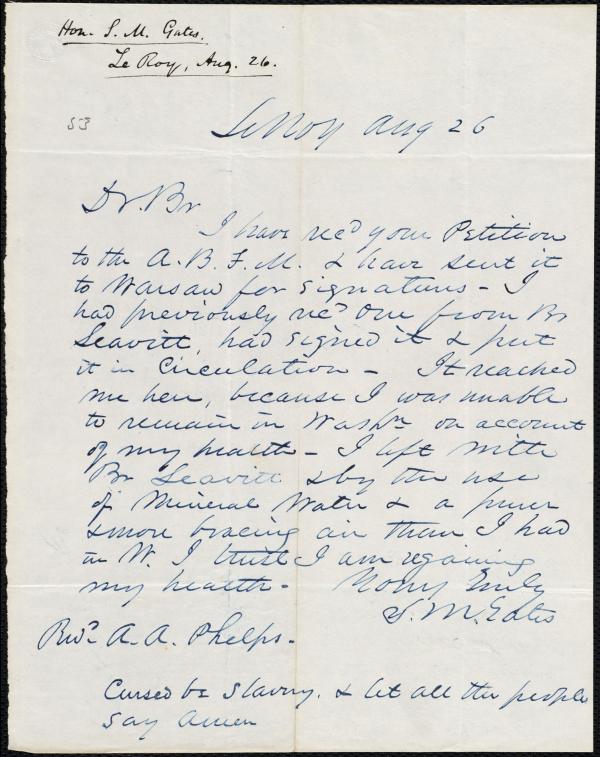 Hon. S. M. Gates.
Le Roy, Aug. 26.
53
LeRoy Aug 26
Dr. Br
I have recd your Petition
to the A. B. F. M. & have sent it
to Warsaw for signatures - I
had previously recd one from Br
Leavitt, had signed it & put
it in Circulation - It reached
me here, because I was unable
to remain in Washn on account
of my health - I left with
Br Leavitt & by the use
of Mineral Water & a purer
& more bracing air than I had
in W. I trust I am regaining
my health - Yours truly
S. M. Gates
Revd A. A. Phelps.
Cursed be Slavery. & let all the people
say amen